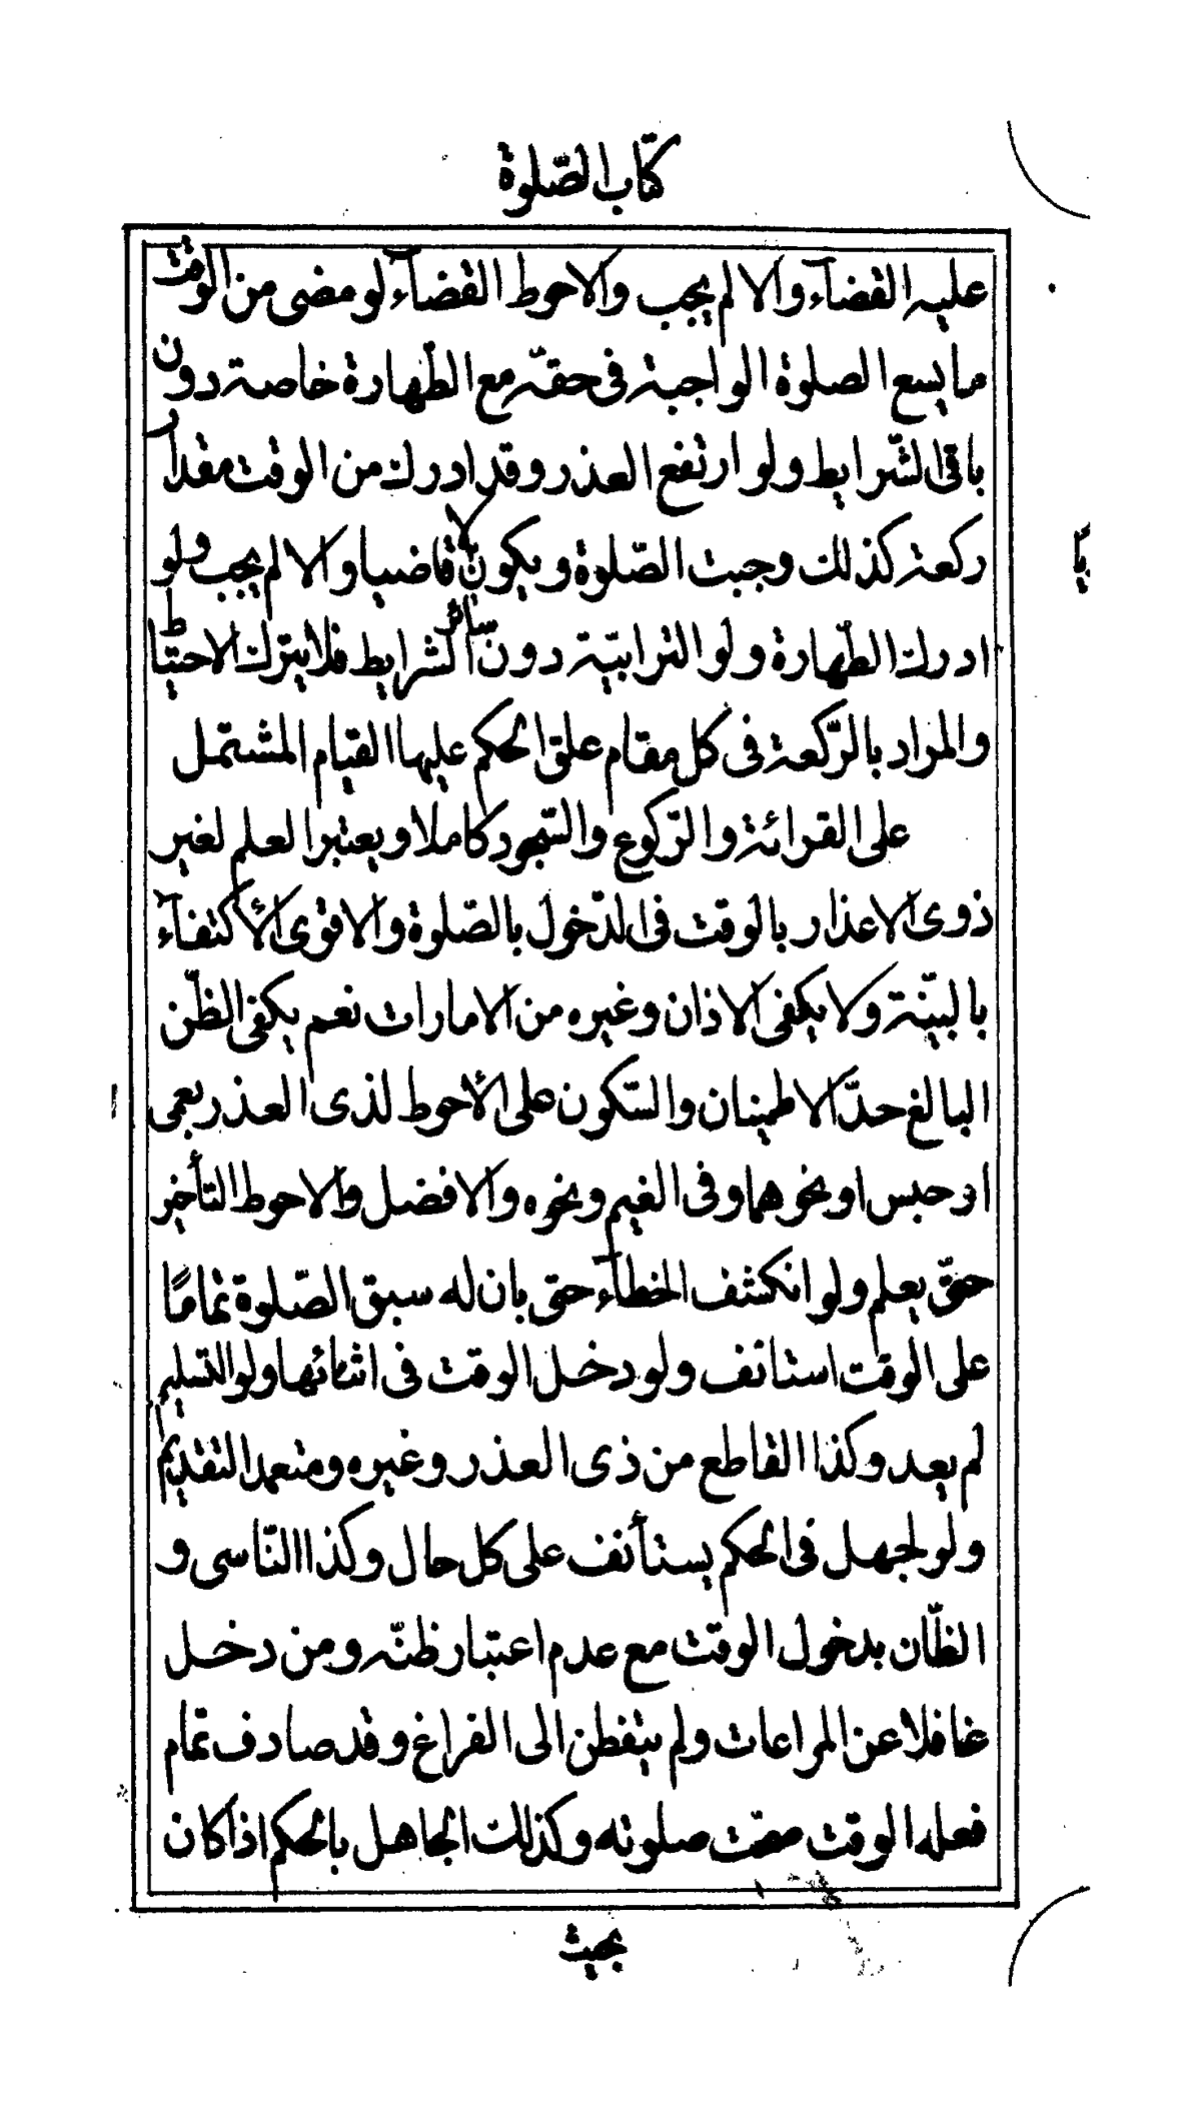 كتاب الصّلوة
عليه القضآء والا لم يجب والاحوط القضآء لو مضى من الوقت
ما يسع الصلوة الواجبة فى حقّه مع الطّهارة خاصة دون
باقى الشّرايط ولو ارتفع العذر وقد ادرك من الوقت مقدار
ركعة كذلك وجبت الصّلوة ويكون لا قاضيا والا لم يجب ولو
ادرك الطّهارة ولو الترابيّة دون سائر الشرايط فلا يترك الاحتياط
والمراد بالرّكعة فى كل مقام علق الحكم عليها القيام المشتمل
على القرائة والرّكوع والسّجود كاملا ويعتبر العلم لغير
ذوى الاعذار بالوقت فى الدّخول بالصّلوة والاقوى الأكتفآء
بالبيّنة ولا يكفى الاذان وغيره من الامارات نعم يكفى الظّن
البالغ حدّ الاطمينان والسّكون على الأحوط لذى العذر بعمى
او حبس او نحوهما وفى الغيم ونحوه والافضل والاحوط التأخير
حتّى يعلم ولو انكشف الخطآء حتى بان له سبق الصّلوة تمامًا
على الوقت استانف ولو دخل الوقت فى اثنائها ولو التسليم
لم يعد وكذا القاطع من ذى العذر وغيره ومتعمد التقديم
ولو لجهل فى الحكم يستأنف على كل حال وكذا النّاسى و
الظّان بدخول الوقت مع عدم اعتبار ظنّه ومن دخل
غافلا عن المراعات ولم يتفطن الى الفراغ وقد صادف تمام
فعله الوقت صحّت صلوته وكذلك الجاهل بالحكم اذا كان
بحيث